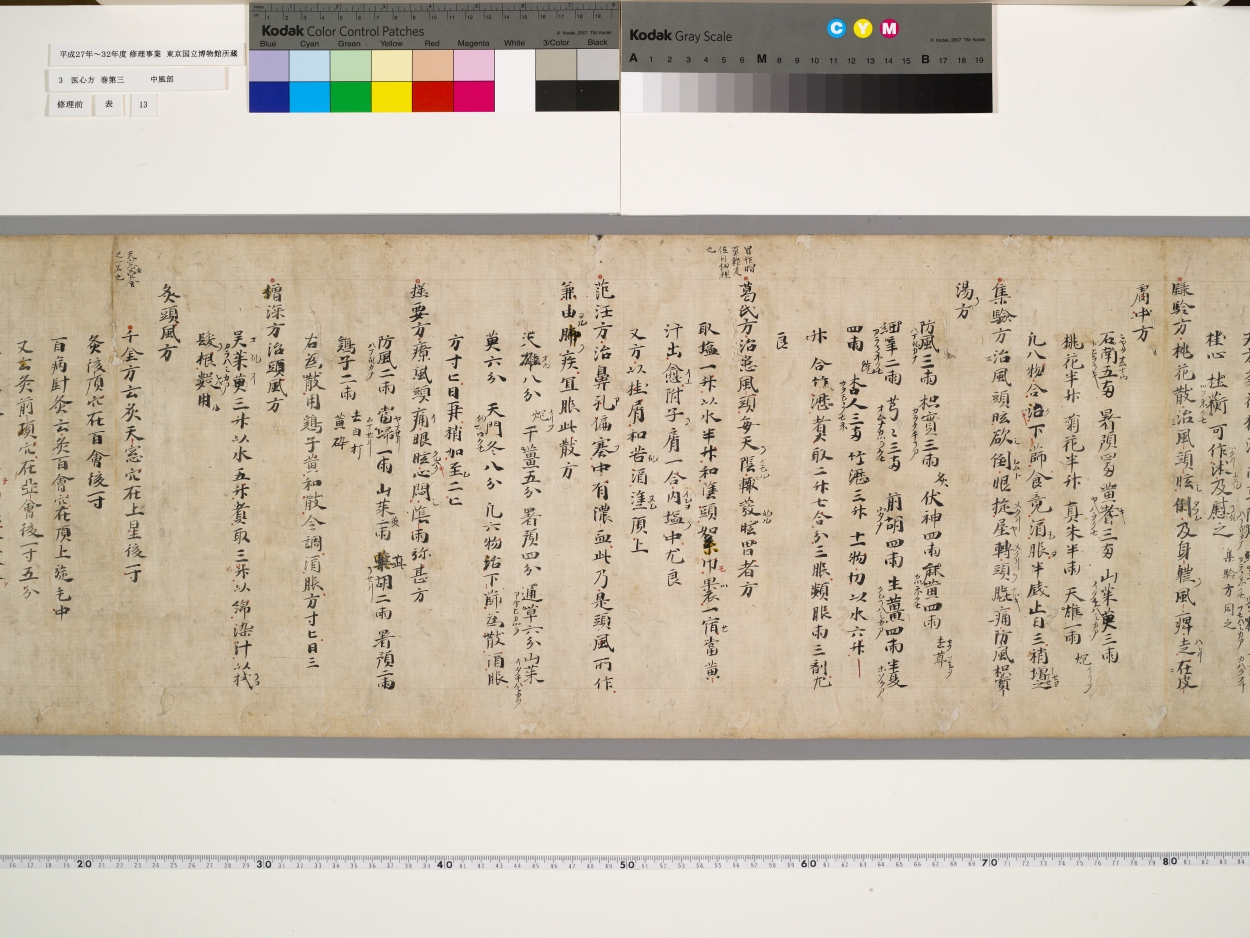 平成27年～32年度 修理事業 東京国立博物館所蔵
3 医心方 巻第三 中風部
修理前 表 13
Kodak Color Control Patches
© Kodak, 2007 TM: Kodak
Blue Cyan Green Yellow Red Magenta White 3/Color Black
Kodak Gray Scale
C Y M
© Kodak, 2007 TM: Kodak
A 1 2 3 4 5 6 M 8 9 10 11 12 13 14 15 B 17 18 19
桂心 杜蘅 可作沐及慰之 集驗方同之
錄驗方桃花散治風頭眩倒及身體風痺走在皮
膚中方
石南五兩 署預四兩 黃耆三兩 山茱萸三兩
桃花半升 菊花半升 真朱半兩 天雄一兩 炮
凡八物合治下篩食竟酒服半錢匕日三稍增之
集驗方治風頭眩欲倒眼旋屋轉頭腦痛防風枳實
湯方
防風三兩 枳實三兩 炙 伏神四兩 麻黃四兩 去節
細辛二兩 芎々三兩 前胡四兩 生薑四兩 半夏
四兩 洗 杏人三兩 竹瀝三升 十一物切以水六升
升 合竹瀝煮取二升七合分三服頻服兩三劑尤
良
葛氏方治患風頭每天陰輒發眩冒者方
取塩一升以水半升和塗頭如絮巾裹一宿當黃
汁出愈附子屑一合內塩中尤良
又方以桂屑和苦酒塗頂上
范汪方治鼻孔偏塞中有濃血此乃是頭風所作
兼由肺疾宜服此散方
天雄八分 炮 干薑五分 署預四分 通草六分 山茱
萸六分 天門冬八分 凡六物治下篩為散酒服
方寸匕日再稍加至二匕
撰要方療風頭痛眼眩心悶陰雨弥甚方
防風二兩 當歸一兩 山茱萸一兩 柴胡二兩 署預二兩
鷄子二兩 去白打黃碎
右為散用鷄子黃和散令調酒服方寸匕日三
僧深方治頭風方
吳茱萸三升以水五升煮取三升以綿染汁以拭
髮根數用
灸頭風方
千金方云灸天窓穴在上星後一寸
灸後頂穴在百會後一寸
百病針灸云灸百會穴在頂上旋毛中
又云灸前頂穴在囟會後一寸五分
20 30 40 50 60 70 80